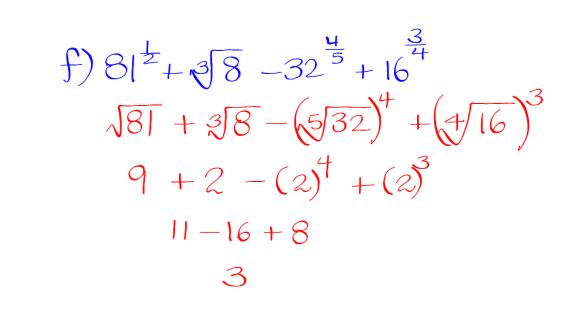 f) 81^{1/2} + ∛8 - 32^{4/5} + 16^{3/4}
√81 + ∛8 - (⁵√32)^4 + (⁴√16)^3
9 + 2 - (2)^4 + (2)^3
11 - 16 + 8
3